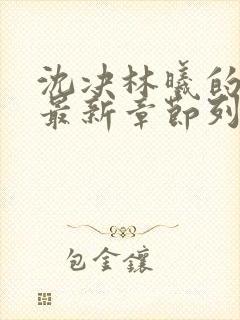 沈决林曦的
最新章节列
包金镶